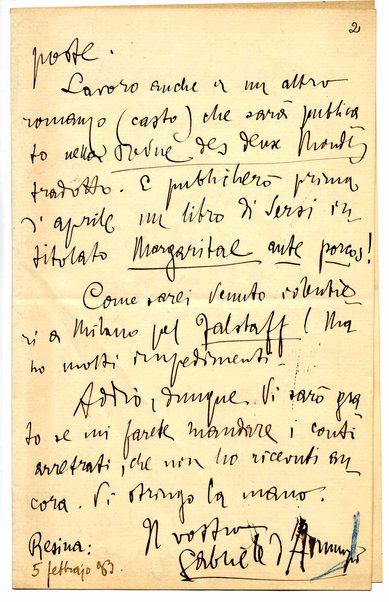 2
poste.
Lavoro anche a un altro
romanzo (casto) che sarà pubblica
to nella Revue des deux Mondes
tradotto. E pubblicherò prima
d'aprile un libro di versi in
titolato Margaritae ante porcos!
Come sarei venuto volentie
ri a Milano pel Falstaff! Ma
ho molti impedimenti.
Addio, dunque. Vi sarò gra
to se mi farete mandare i conti
arretrati, che non ho ricevuti an
cora. Vi stringo la mano.
Il vostro
Gabriele d'Annunzio
Resina:
5 febbrajo 93.